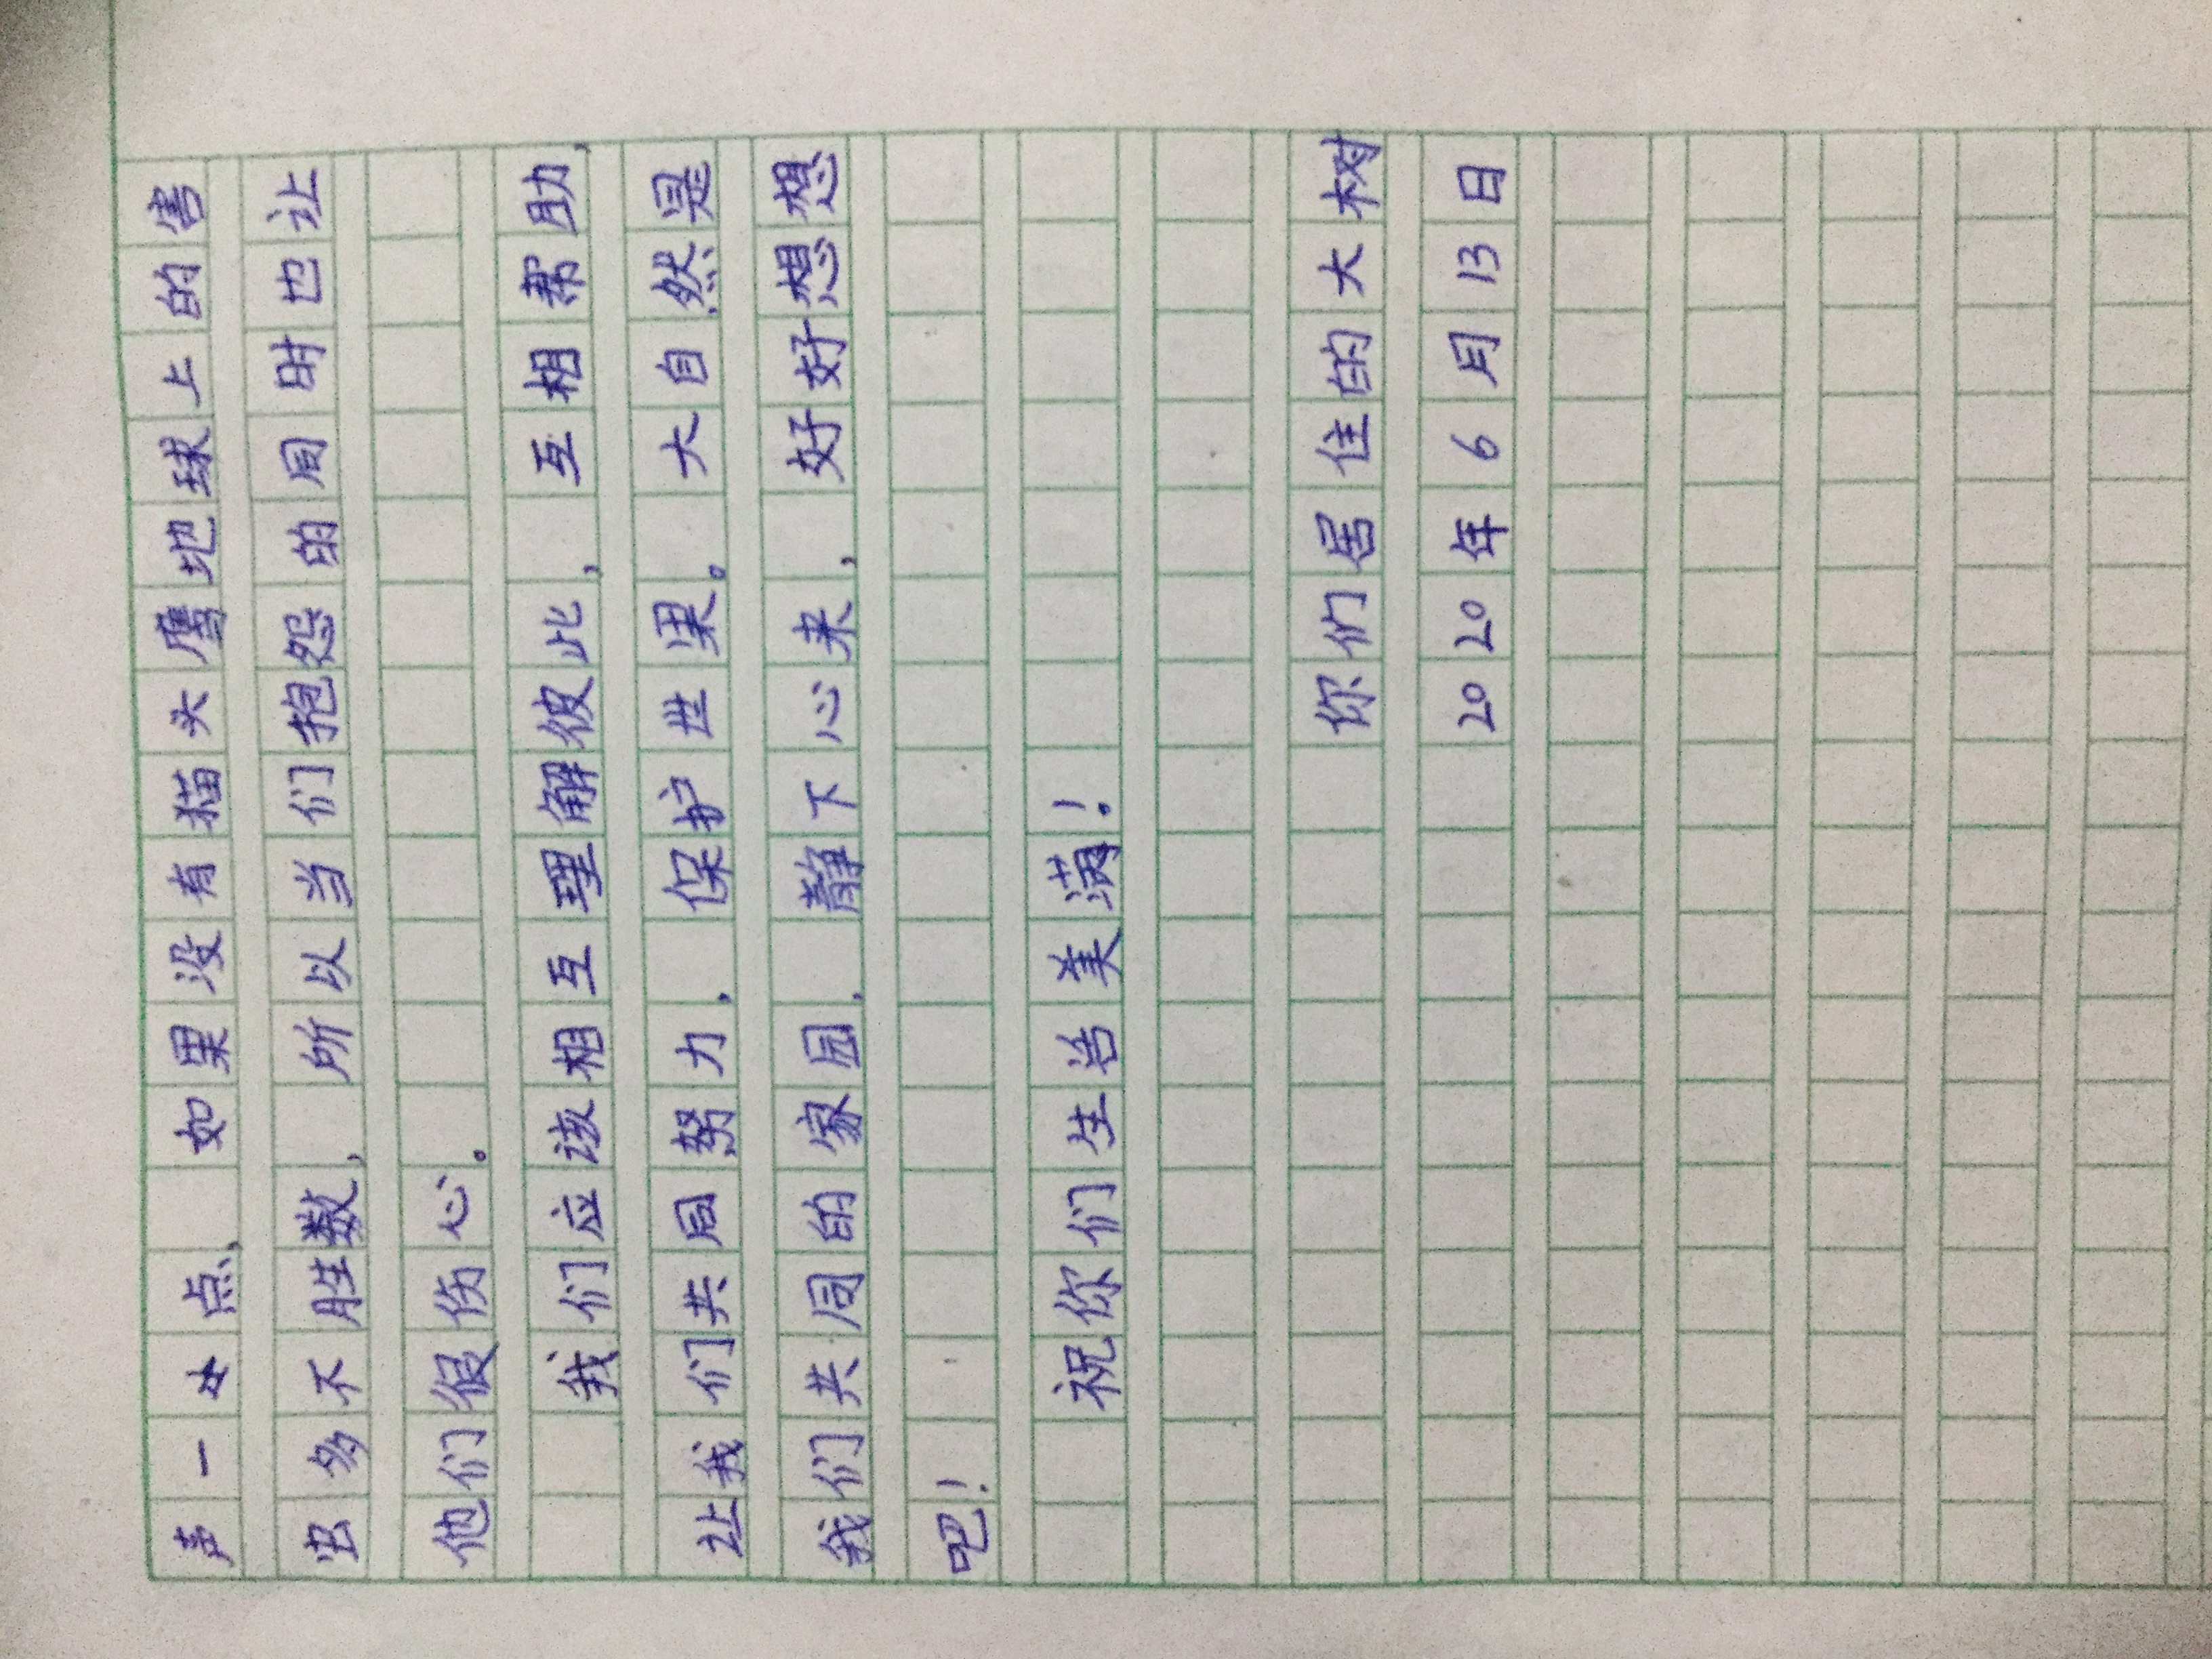 声一小点，如果没有猫头鹰地球上的害
虫多不胜数，所以当们抱怨的同时也让
他们很伤心。
我们应该相互理解彼此，互相帮助，
让我们共同努力，保护世界。大自然是
我们共同的家园，静下心来，好好想想
吧！
祝你们生活美满！
你们居住的大树
2020年6月13日